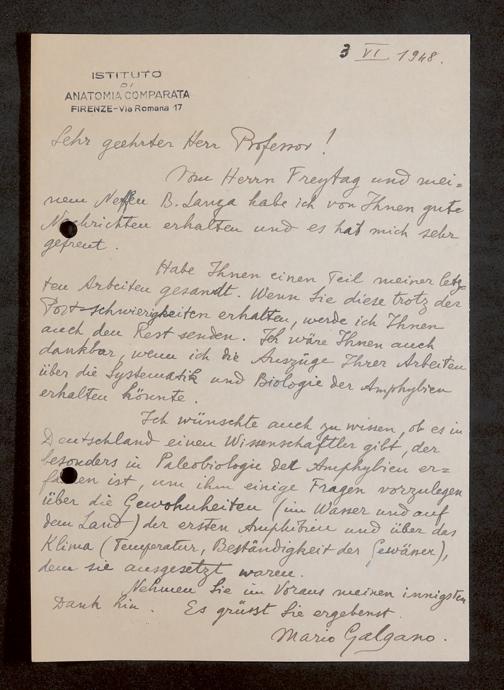 3 VI 1948.
ISTITUTO
DI
ANATOMIA COMPARATA
FIRENZE - Via Romana 17
Sehr geehrter Herr Professor!
Vom Herrn Freytag und mei=
nem Neffen B. Lanza habe ich von Ihnen gute
Nachrichten erhalten und es hat mich sehr
gefreut.
Habe Ihnen einen Teil meiner letz
ten Arbeiten gesandt. Wenn Sie diese trotz der
Postschwierigkeiten erhalten, werde ich Ihnen
auch den Rest senden. Ich wäre Ihnen auch
dankbar, wenn ich die Auszüge Ihrer Arbeiten
über die Systematik und Biologie der Amphybien
erhalten könnte.
Ich wünschte auch zu wissen, ob es in
Deutschland einen Wissenschaftler gibt, der
besonders in Paleobiologie det Amphybien er=
fahren ist, um ihm einige Fragen vorzulegen
über die Gewohnheiten (im Wasser und auf
dem Land) der ersten Amphibien und über das
Klima (Temperatur, Beständigkeit der Gewässer),
dem sie ausgesetzt waren.
Nehmen Sie im Voraus meinen innigsten
Dank hin. Es grüsst Sie ergebenst
Mario Galgano.